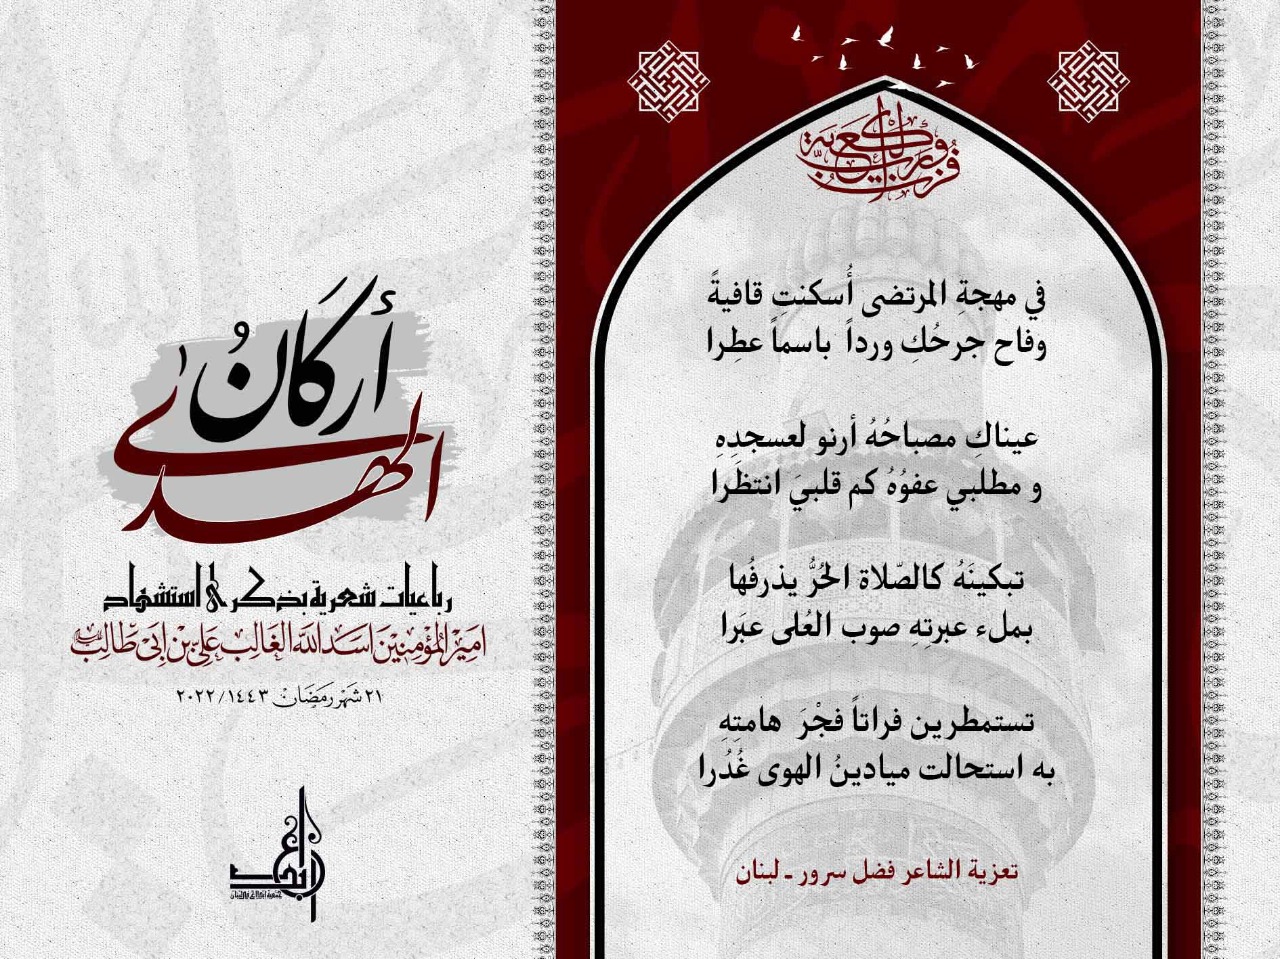 فزت ورب الكعبة
في مهجةِ المرتضى أُسكنتِ قافيةً
وفاح جرحُكِ ورداً باسماً عطِرا
عيناكِ مصباحُهُ أرنو لعسجدِهِ
و مطلبي عفوُهُ كم قلبيَ انتظَرا
تبكينَهُ كالصّلاة الحُرُّ يذرفُها
بملء عبرتِهِ صوب العُلى عبَرا
تستمطرين فراتاً فجْرَ هامتِهِ
به استحالت ميادينُ الهوى غُدُرا
تعزية الشاعر فضل سرور - لبنان
أركانُ
الهدى
رباعيات شعرية بذكرى استشهاد
اميرُ المُؤمِنِينَ اسَدَ اللهُ الغَالِب عَلِيّ بْن اَبي طَالِبْ
٢١ شَهْر رَمَضَانْ ١٤٤٣/٢٠٢٢